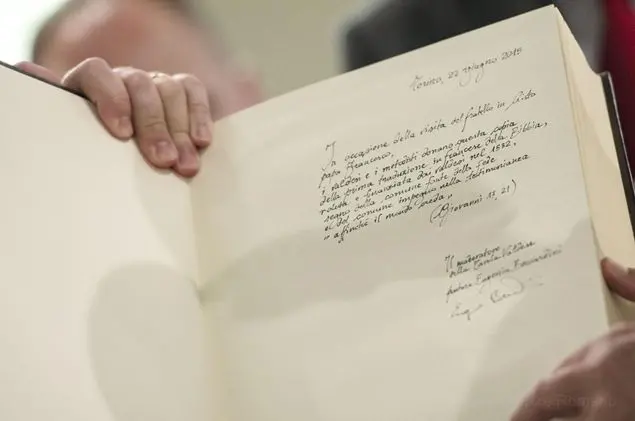 Torino, 22 giugno 2015
In occasione della visita del fratello in Cristo
papa Francesco,
i valdesi e i metodisti donano questa copia
della prima traduzione in francese della Bibbia,
voluta e finanziata dai valdesi nel 1532,
segno della comune fonte della fede
e del comune impegno nella testimonianza
"affinché il mondo creda"
(Giovanni 17, 21)
Il moderatore
della Tavola Valdese
pastore Eugenio Bernardini